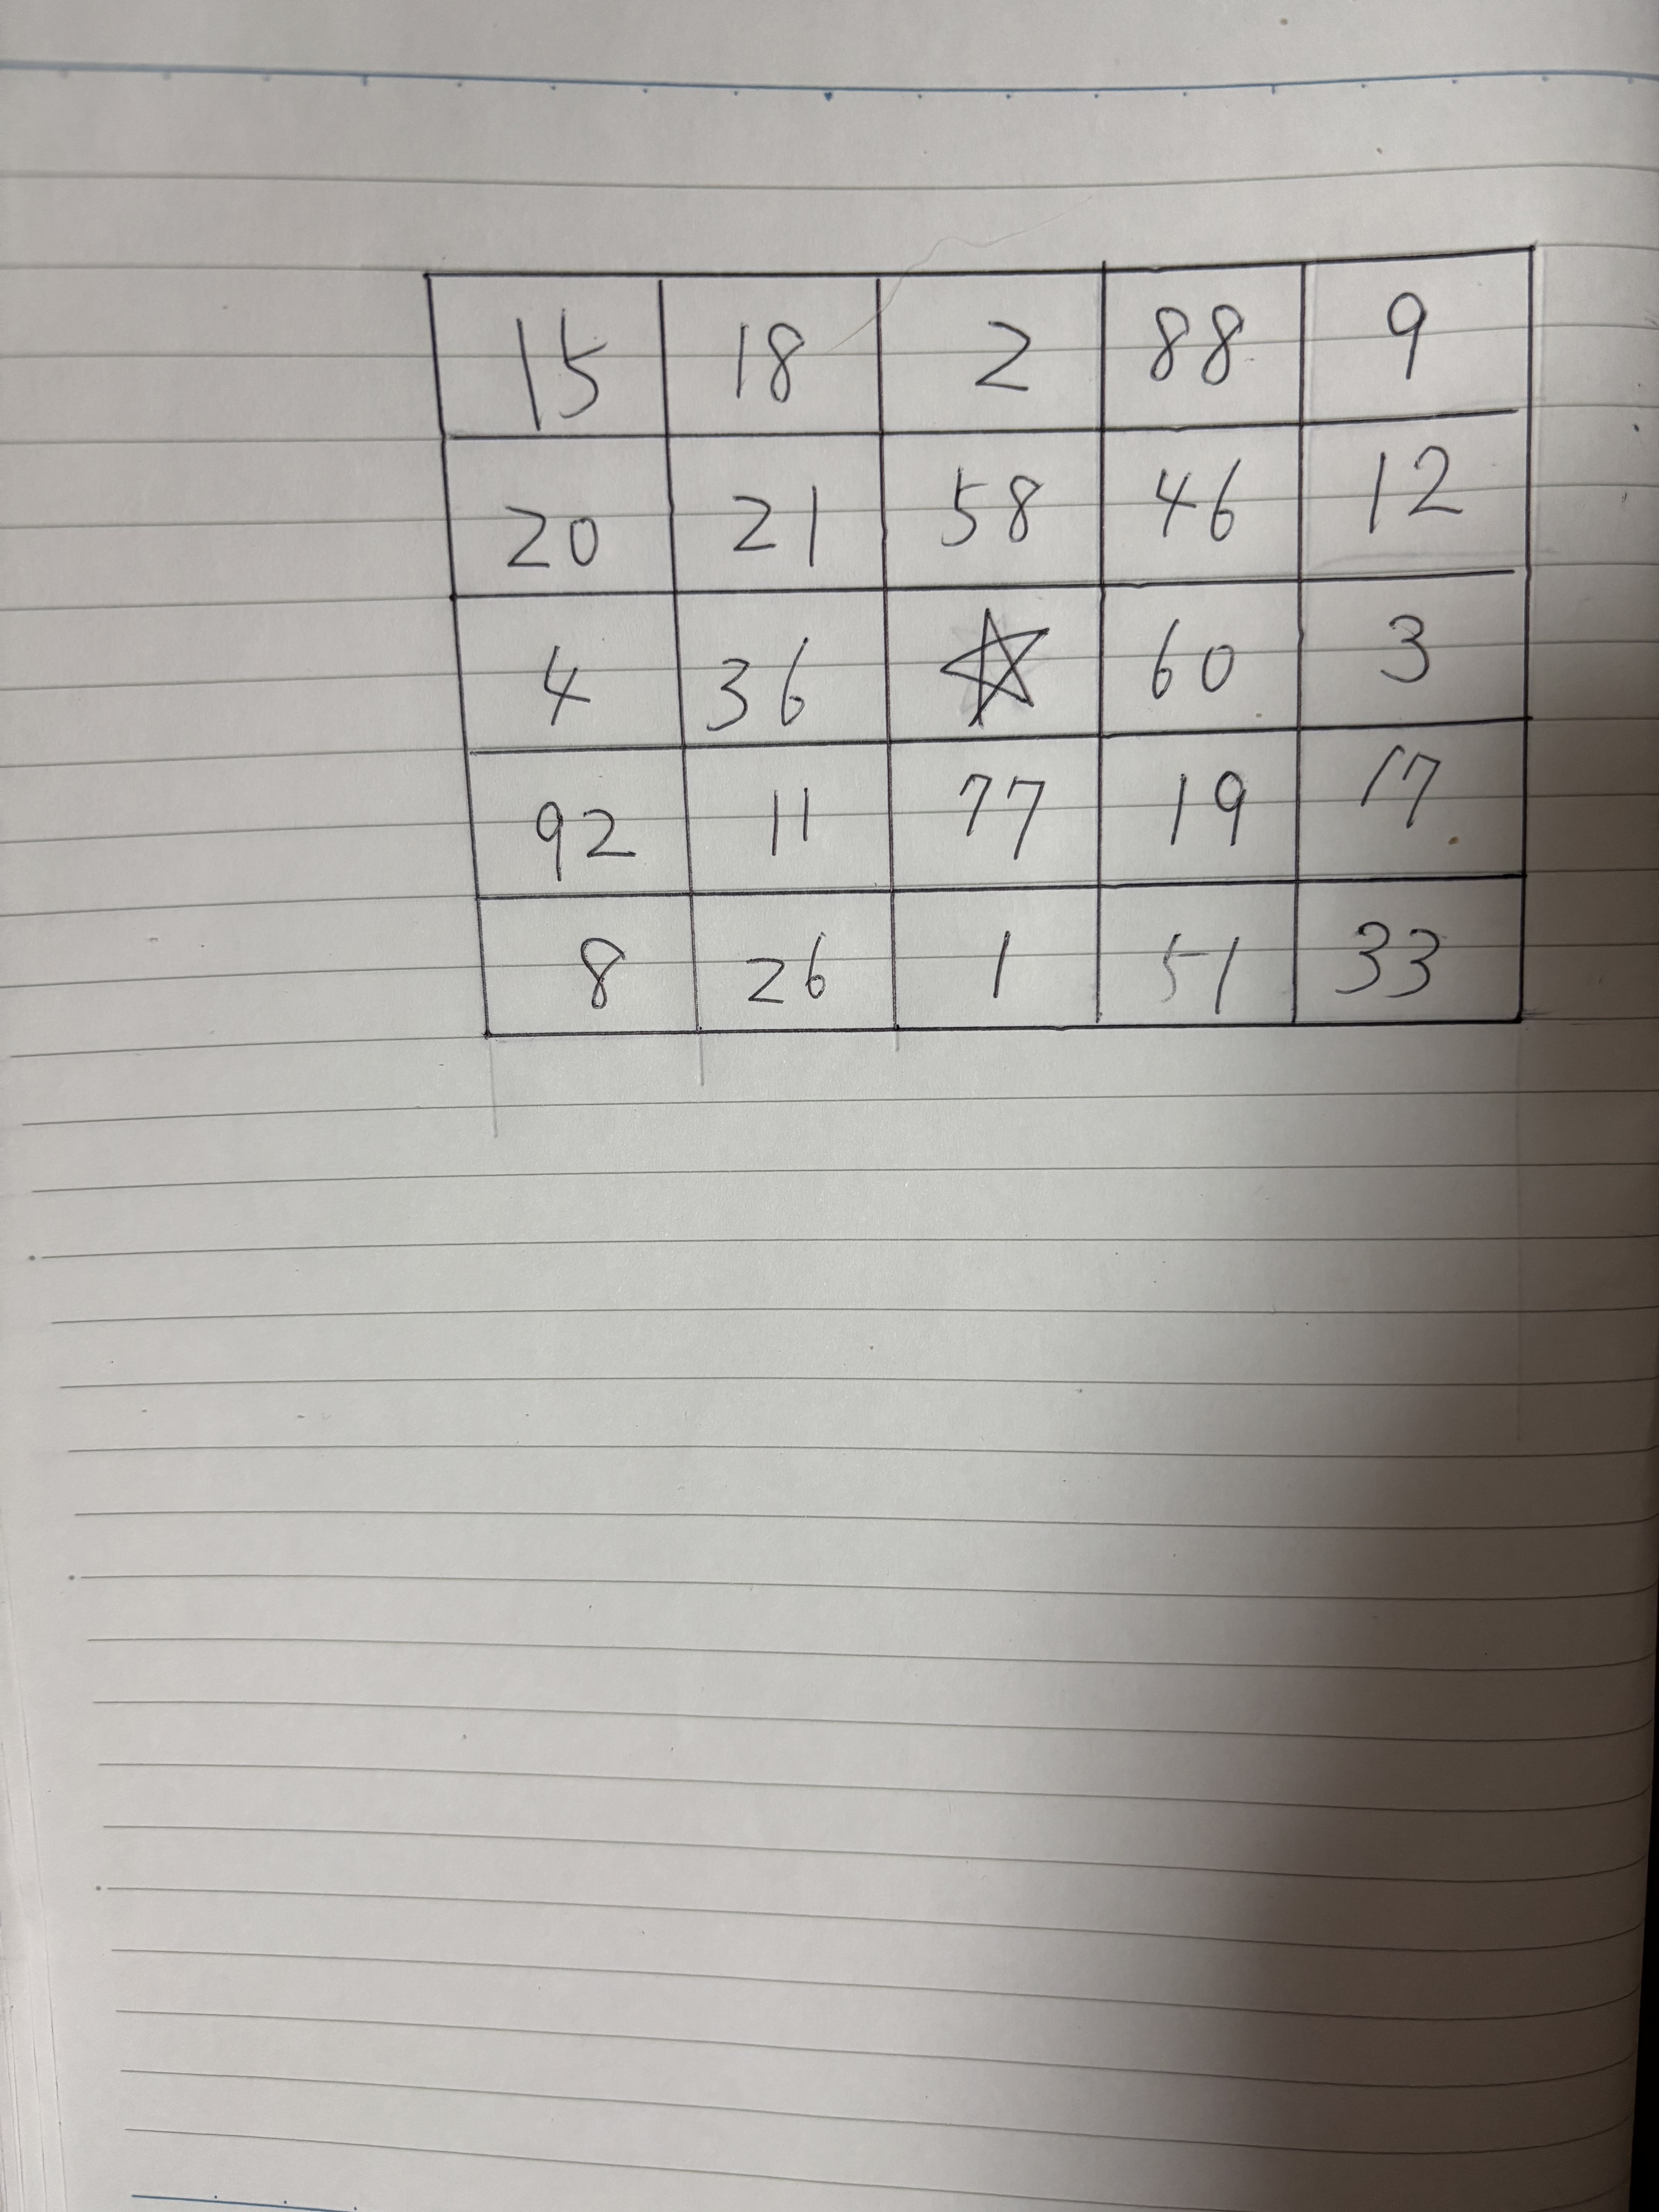 15 18 2 88 9
20 21 58 46 12
4 36 ☆ 60 3
92 11 77 19 17
8 26 1 51 33